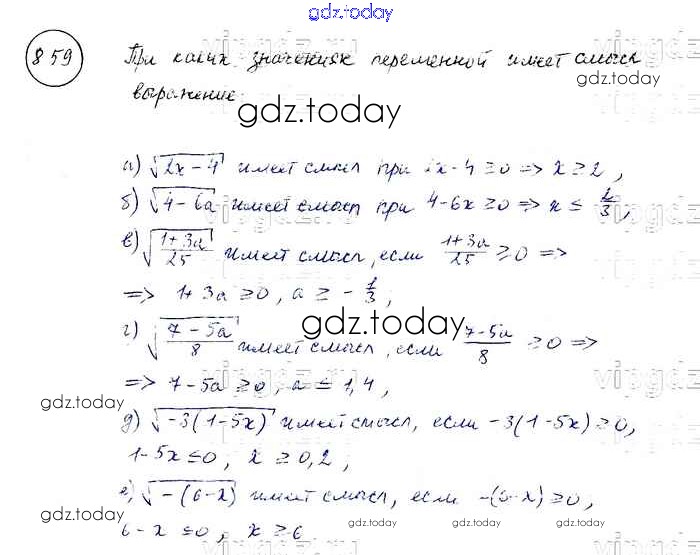 gdz.today
859 При каких значениях переменной имеет смысл
выражение.
gdz.today
а) √(2x-4) имеет смысл при 2x-4≥0 => x≥2,
б) √(4-6a) имеет смысл при 4-6x≥0 => x≤ 2/3,
в) √((1+3a)/25) имеет смысл, если (1+3a)/25 ≥0 =>
=> 1+3a≥0, a≥ -1/3;
gdz.today
г) √((7-5a)/8) имеет смысл, если (7-5a)/8 ≥0 =>
=> 7-5a≥0, a≤1,4,
gdz.today
д) √(-3(1-5x)) имеет смысл, если -3(1-5x)≥0,
1-5x≤0, x≥0,2;
gdz.today
е) √(-(6-x)) имеет смысл, если -(6-x)≥0,
6-x≤0, x≥6
gdz.today gdz.today gdz.today